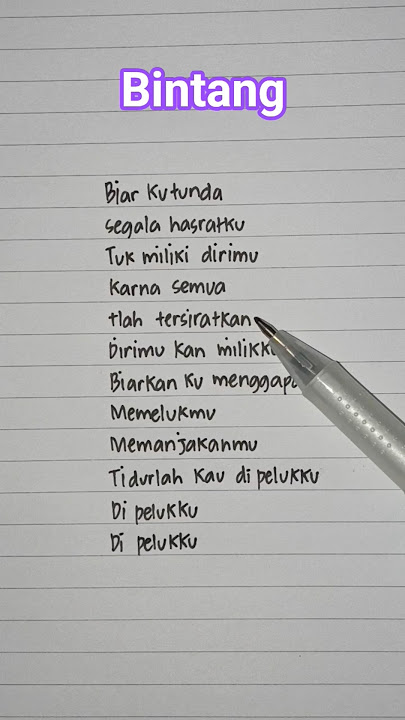 Bintang
Biar Kutunda
segala hasratku
Tuk miliki dirimu
Karna semua
tlah tersiratkan
Dirimu kan
Biarkan Ku
Memelukmu
Memanjakanmu
Tidurlah Kau di pelukku
Di pelukku
Di pelukku